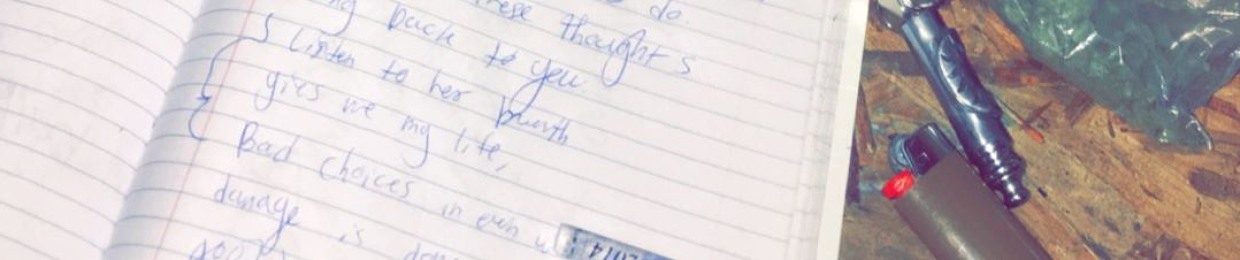 do.
these thoughts
back to you
Listen to her breath
gives me my life,
Bad choices in even
damage is done
good
2014